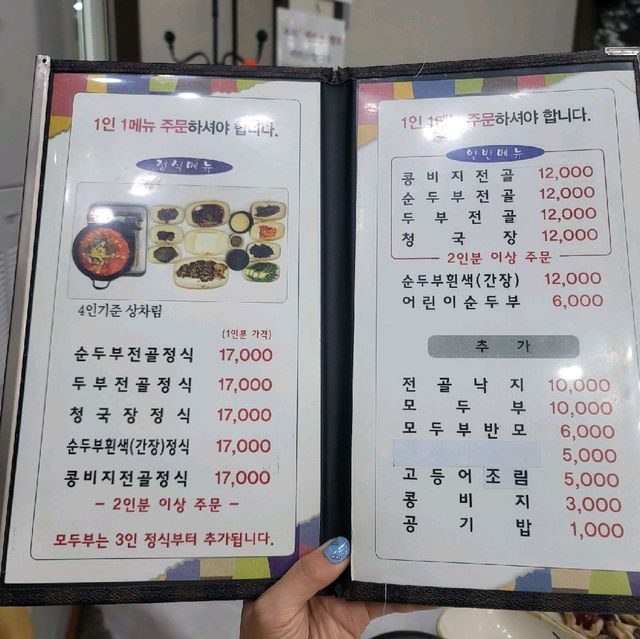 1인 1메뉴 주문하셔야 합니다.
정식메뉴
4인기준 상차림
(1인분 가격)
순두부전골정식 17,000
두부전골정식 17,000
청국장정식 17,000
순두부흰색(간장)정식 17,000
콩비지전골정식 17,000
- 2인분 이상 주문 -
모두부는 3인 정식부터 추가됩니다.
1인 1메뉴 주문하셔야 합니다.
일반메뉴
콩비지전골 12,000
순두부전골 12,000
두부전골 12,000
청국장 12,000
2인분 이상 주문
순두부흰색(간장) 12,000
어린이순두부 6,000
추가
전골낙지 10,000
모두부 10,000
모두부반모 6,000
5,000
고등어조림 5,000
콩비지 3,000
공기밥 1,000